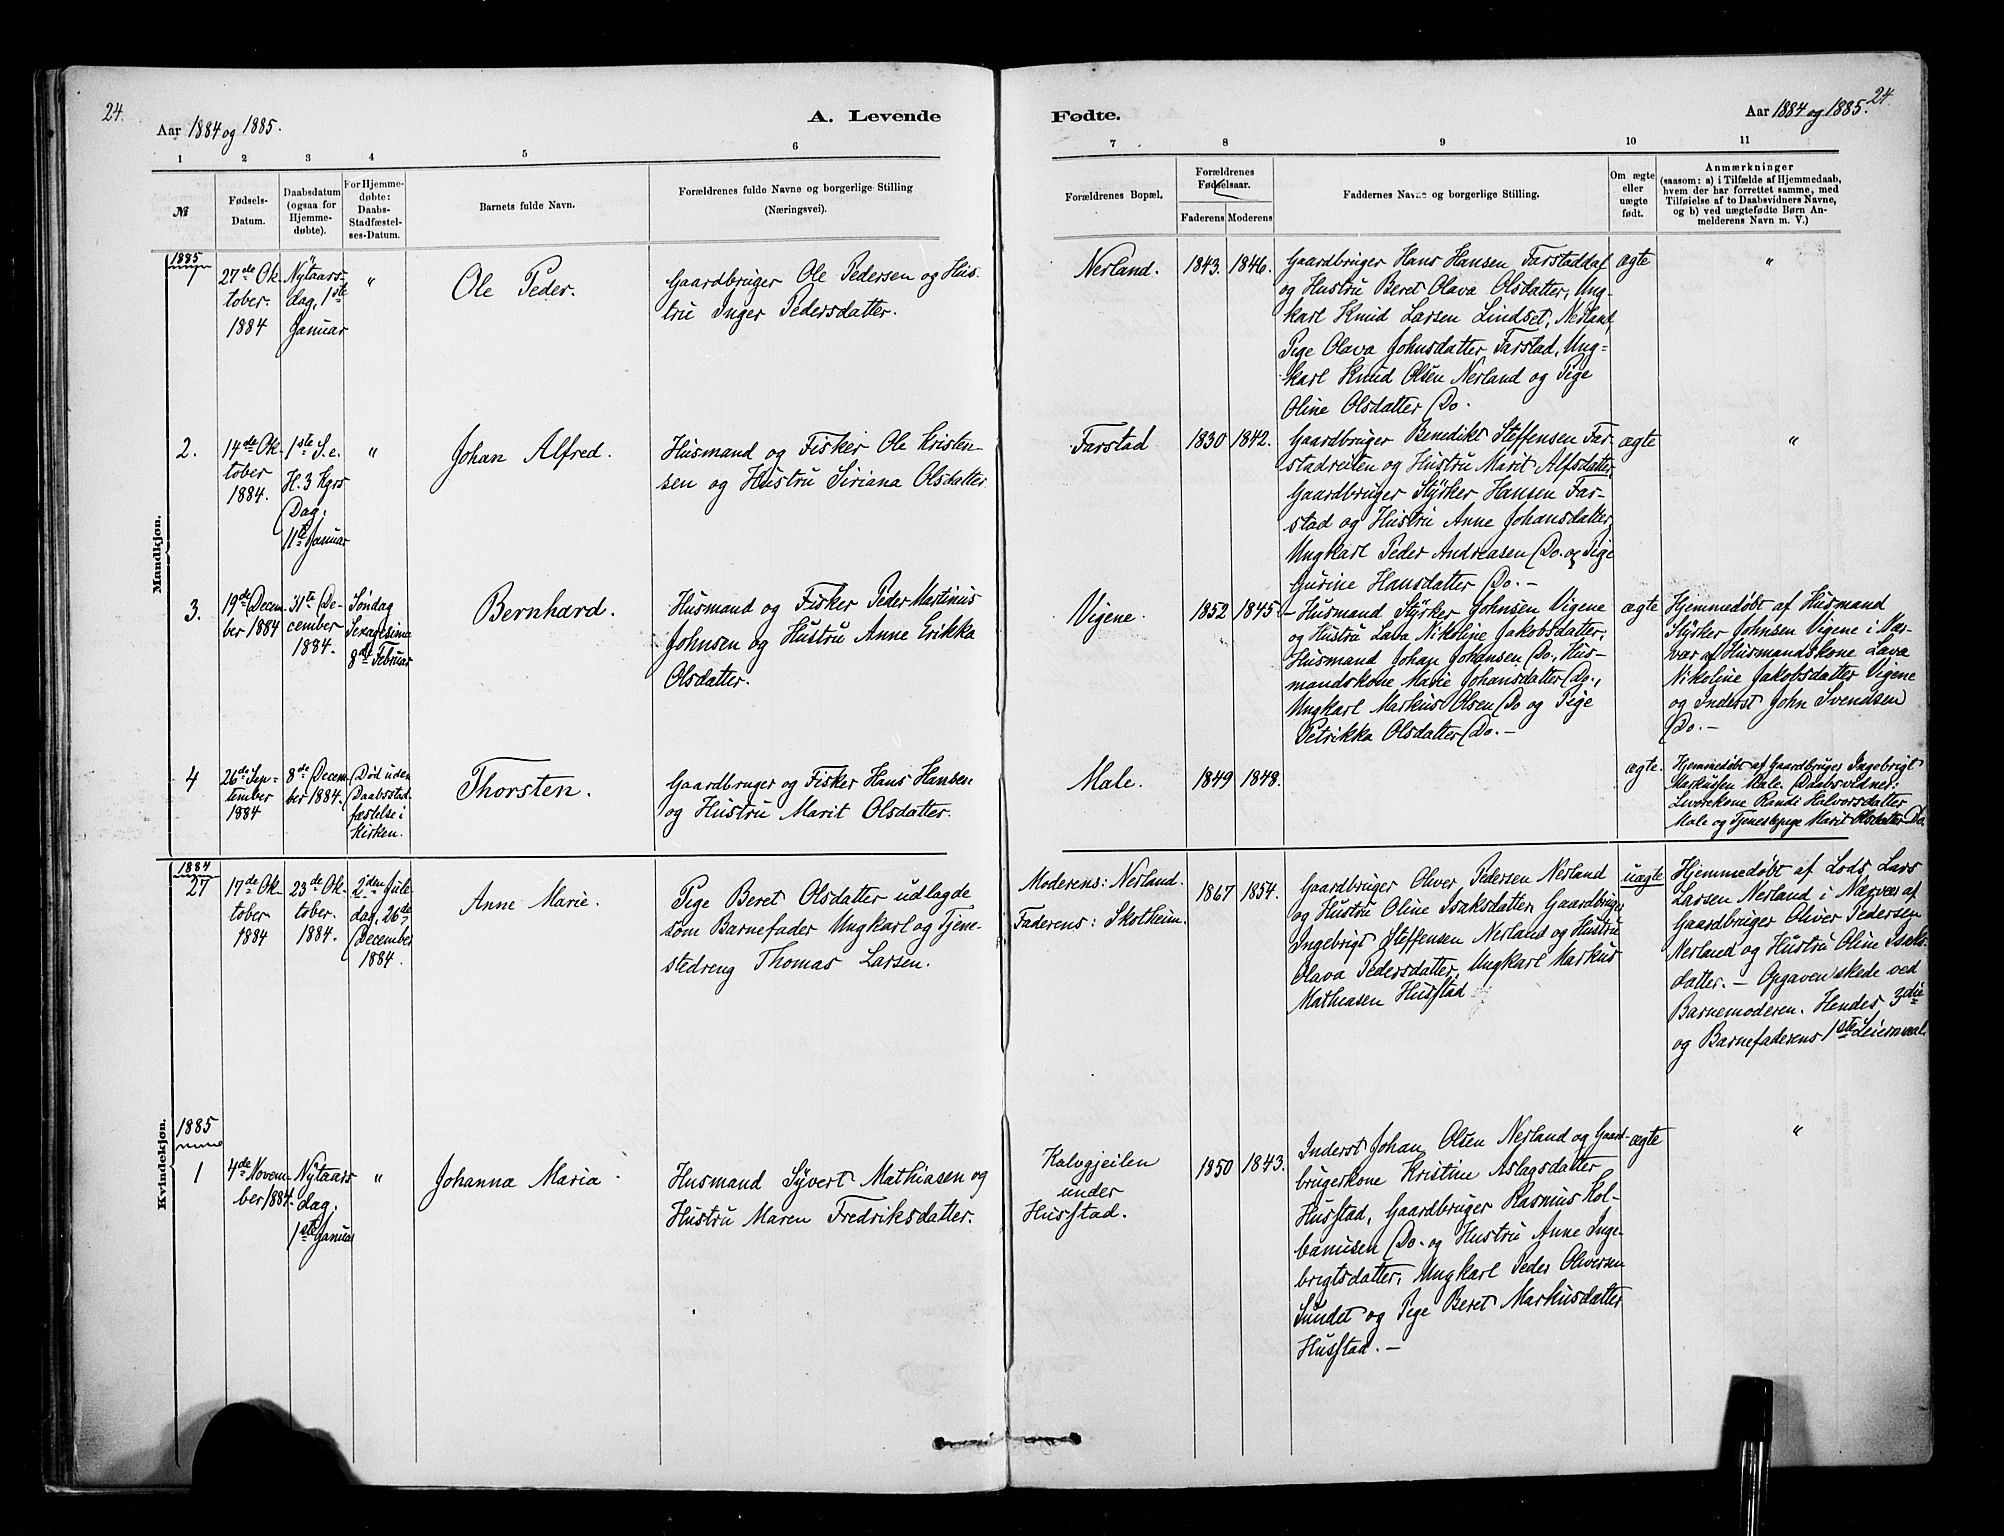 24.
Aar 1884 og 1885.
A. Levende
Fødte.
Aar 1884 og 1885.
24.
1 2 3 4 5 6 7 8 9 10 11
№
Fødsels-
Datum.
Daabsdatum
(ogsaa for
Hjemme-
døbte).
For Hjemme-
døbte:
Daabs-
Stadfæstel-
ses-Datum.
Barnets fulde Navn.
Forældrenes fulde Navne og borgerlige Stilling
(Næringsvei).
Forældrenes Bopæl.
Forældrenes
Fødselsaar.
Faderens Moderens
Faddernes Navne og borgerlige Stilling.
Om ægte
eller
uægte
født.
Anmærkninger
(saasom: a) i Tilfælde af Hjemmedaab,
hvem der har forrettet samme, med
Tilføielse af to Daabsvidners Navne,
og b) ved uægtefødte Børn An-
melderens Navn m. V.)
Mandkjøn.
1885
1
27de Ok-
tober.
1884
Nytaars-
dag, 1ste
Januar
"
Ole Peder.
Gaardbruger Ole Pedersen og Hus-
tru Inger Pedersdatter.
Nerland.
1843. 1846.
Gaardbruger Hans Hansen Farstaddal
og Hustru Beret Olava Olsdatter, Ung-
karl Knud Larsen Lindset, Nerland,
Pige Olava Johnsdatter Farstad, Ung-
karl Knud Olsen Nerland og Pige
Oline Olsdatter Do.
ægte
"
2.
14de Ok-
tober
1884.
1ste S. e.
H. 3 Kgrs
Dag,
11te Januar
"
Johan Alfred.
Husmand og Fisker Ole Kristen-
sen og Hustru Siriana Olsdatter
Farstad
1830 1842.
Gaardbruger Benedikt Steffensen Far-
stadreiten og Hustru Marit Alfsdatter,
Gaardbruger Styrker Hansen Far-
stad og Hustru Anne Johansdatter,
Ungkarl Peder Andreasen Do. og Pige
Gurine Hansdatter Do. -
ægte
"
3.
19de Decem-
ber 1884
31te De-
cember
1884.
Søndag
Sexagesima
8de Februar
Bernhard.
Husmand og Fisker Peder Martinus
Johnsen og Hustru Anne Erikka
Olsdatter.
Vigene.
1852 1845.
- Husmand Styrker Johnsen Vigene
og Hustru Lava Nikoline Jakobsdatter,
Husmand Johan Johansen Do., Hus-
mandskone Marie Johansdatter Do.,
Ungkarl Markus Olsen Do og Pige
Petrikka Olsdatter Do. -
ægte
Hjemmedøbt af Husmand
Styrker Johnsen Vigene i Nær-
vær af Husmandskone Lava
Nikoline Jakobsdatter Vigene
og Inderst John Svendsen
Do. -
4
26de Sep-
tember
1884
8de Decem-
ber 1884.
Død uden
Daabsstad-
fæstelse i
Kirken.
Thorsten.
Gaardbruger og Fisker Hans Hansen
og Hustru Marit Olsdatter.
Male.
1849 1848.
ægte.
Hjemmedøbt af Gaardbruger Ingebrigt
Markussen Male. Daabsvidner:
Livørekone Randi Halvorsdatter
Male og Tjenestepige Marit Olsdatter Do.
Kvindekjøn.
1884
27
17de Ok-
tober
1884
23de Ok-
tober.
1884.
2den Jule
dag, 26de
December
1884.
Anne Marie.
Pige Beret Olsdatter udlagde
som Barnefader Ungkarl og Tjene-
stedreng Thomas Larsen.
Moderens: Nerland.
Faderens: Skotheim.
1867 1854.
Gaardbruger Oliver Pedersen Nerland
og Hustru Oline Isaksdatter, Gaardbruger
Ingebrigt Steffensen Nerland og Hustru
Olava Pedersdatter, Ungkarl Markus
Mathiasen Husstad
uægte
Hjemmedøbt af Lods Lars
Larsen Nerland i Nærvær af
Gaardbruger Oliver Pedersen
Nerland og Hustru Oline Isaks-
datter. - Opgaven skede ved
Barnemoderen. Hendes 3die
og Barnefaderens 1ste Leiermaal.
1885
1
4de Novem-
ber 1884.
Nytaars
dag,
1ste Januar
"
Johanna Maria.
Husmand Syvert Mathiasen og
Hustru Maren Fredriksdatter.
Kalvgjeilen
under
Husstad.
1850 1843.
Inderst Johan Olsen Nerland og Gaard-
brugerkone Kristine Aslagsdatter
Husstad, Gaardbruger Rasmus Kol-
banusen Do. og Hustru Anne Inge-
brigtsdatter, Ungkarl Peder Oliversen
Sundet og Pige Beret Markusdatter
Husstad. -
ægte
"